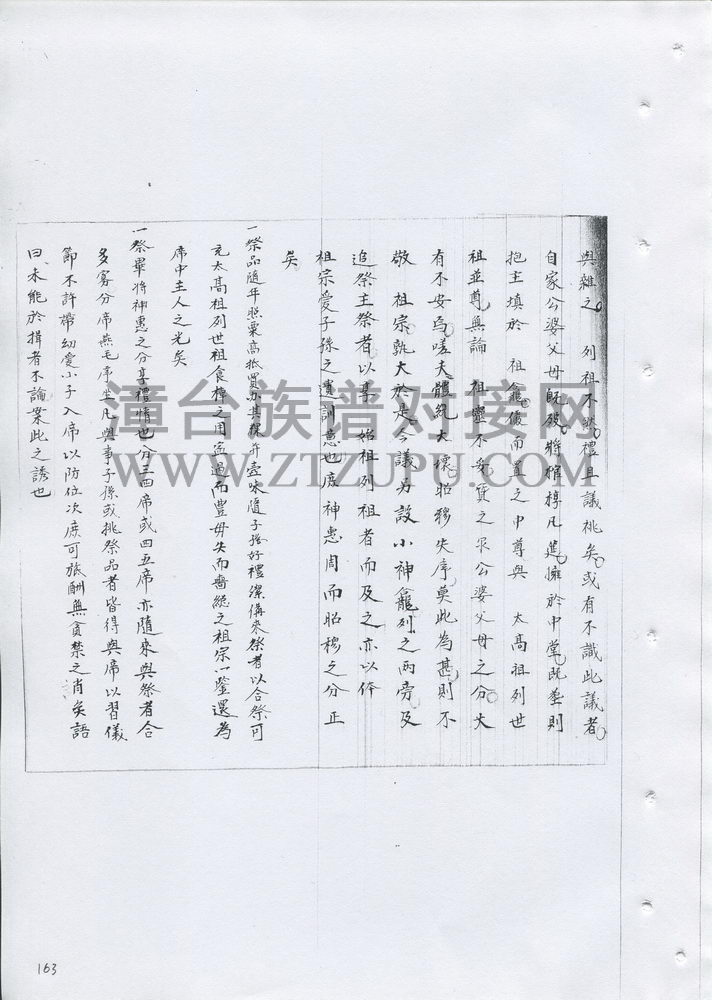 與雜之 列祖不然禮且議祧矣或有不識此議者
自家公婆父母既歿將棺椁凡進擁於中堂既塟則
抱主填於 祖龕後而置之中尊與 太高祖列世
祖並尊無論 祖靈不安質之眾公婆父母之分大
有不安焉嗟夫體統大壞昭穆失序莫此為甚則不
敬 祖宗孰大於是今議另設小神龕列之兩旁及
追祭主祭者以享 始祖列祖者而及之亦以体
祖宗愛子孫之遺訓意也庶神惠周而昭穆之分正
矣
一祭品隨年照粟高抵買办其粿并壼味隨子孫好禮潔偹來祭者以合祭可
充太高祖列世祖食樟之用寍過而豊毋失而嗇緫之祖宗一鑒還為
席中主人之光矣
一祭畢將神惠之分享禮情也分三四席或四五席亦隨來與祭者合
多寡分席燕毛序坐凡與事子孫或挑祭品者皆得與席以習儀
節不許帶幼愛小子入席以防位次庶可旅酬無貪禁之消矣語
曰未能於揖者不論業此之誘也
163
漳台族谱对接网
WWW.ZTZUPU.COM